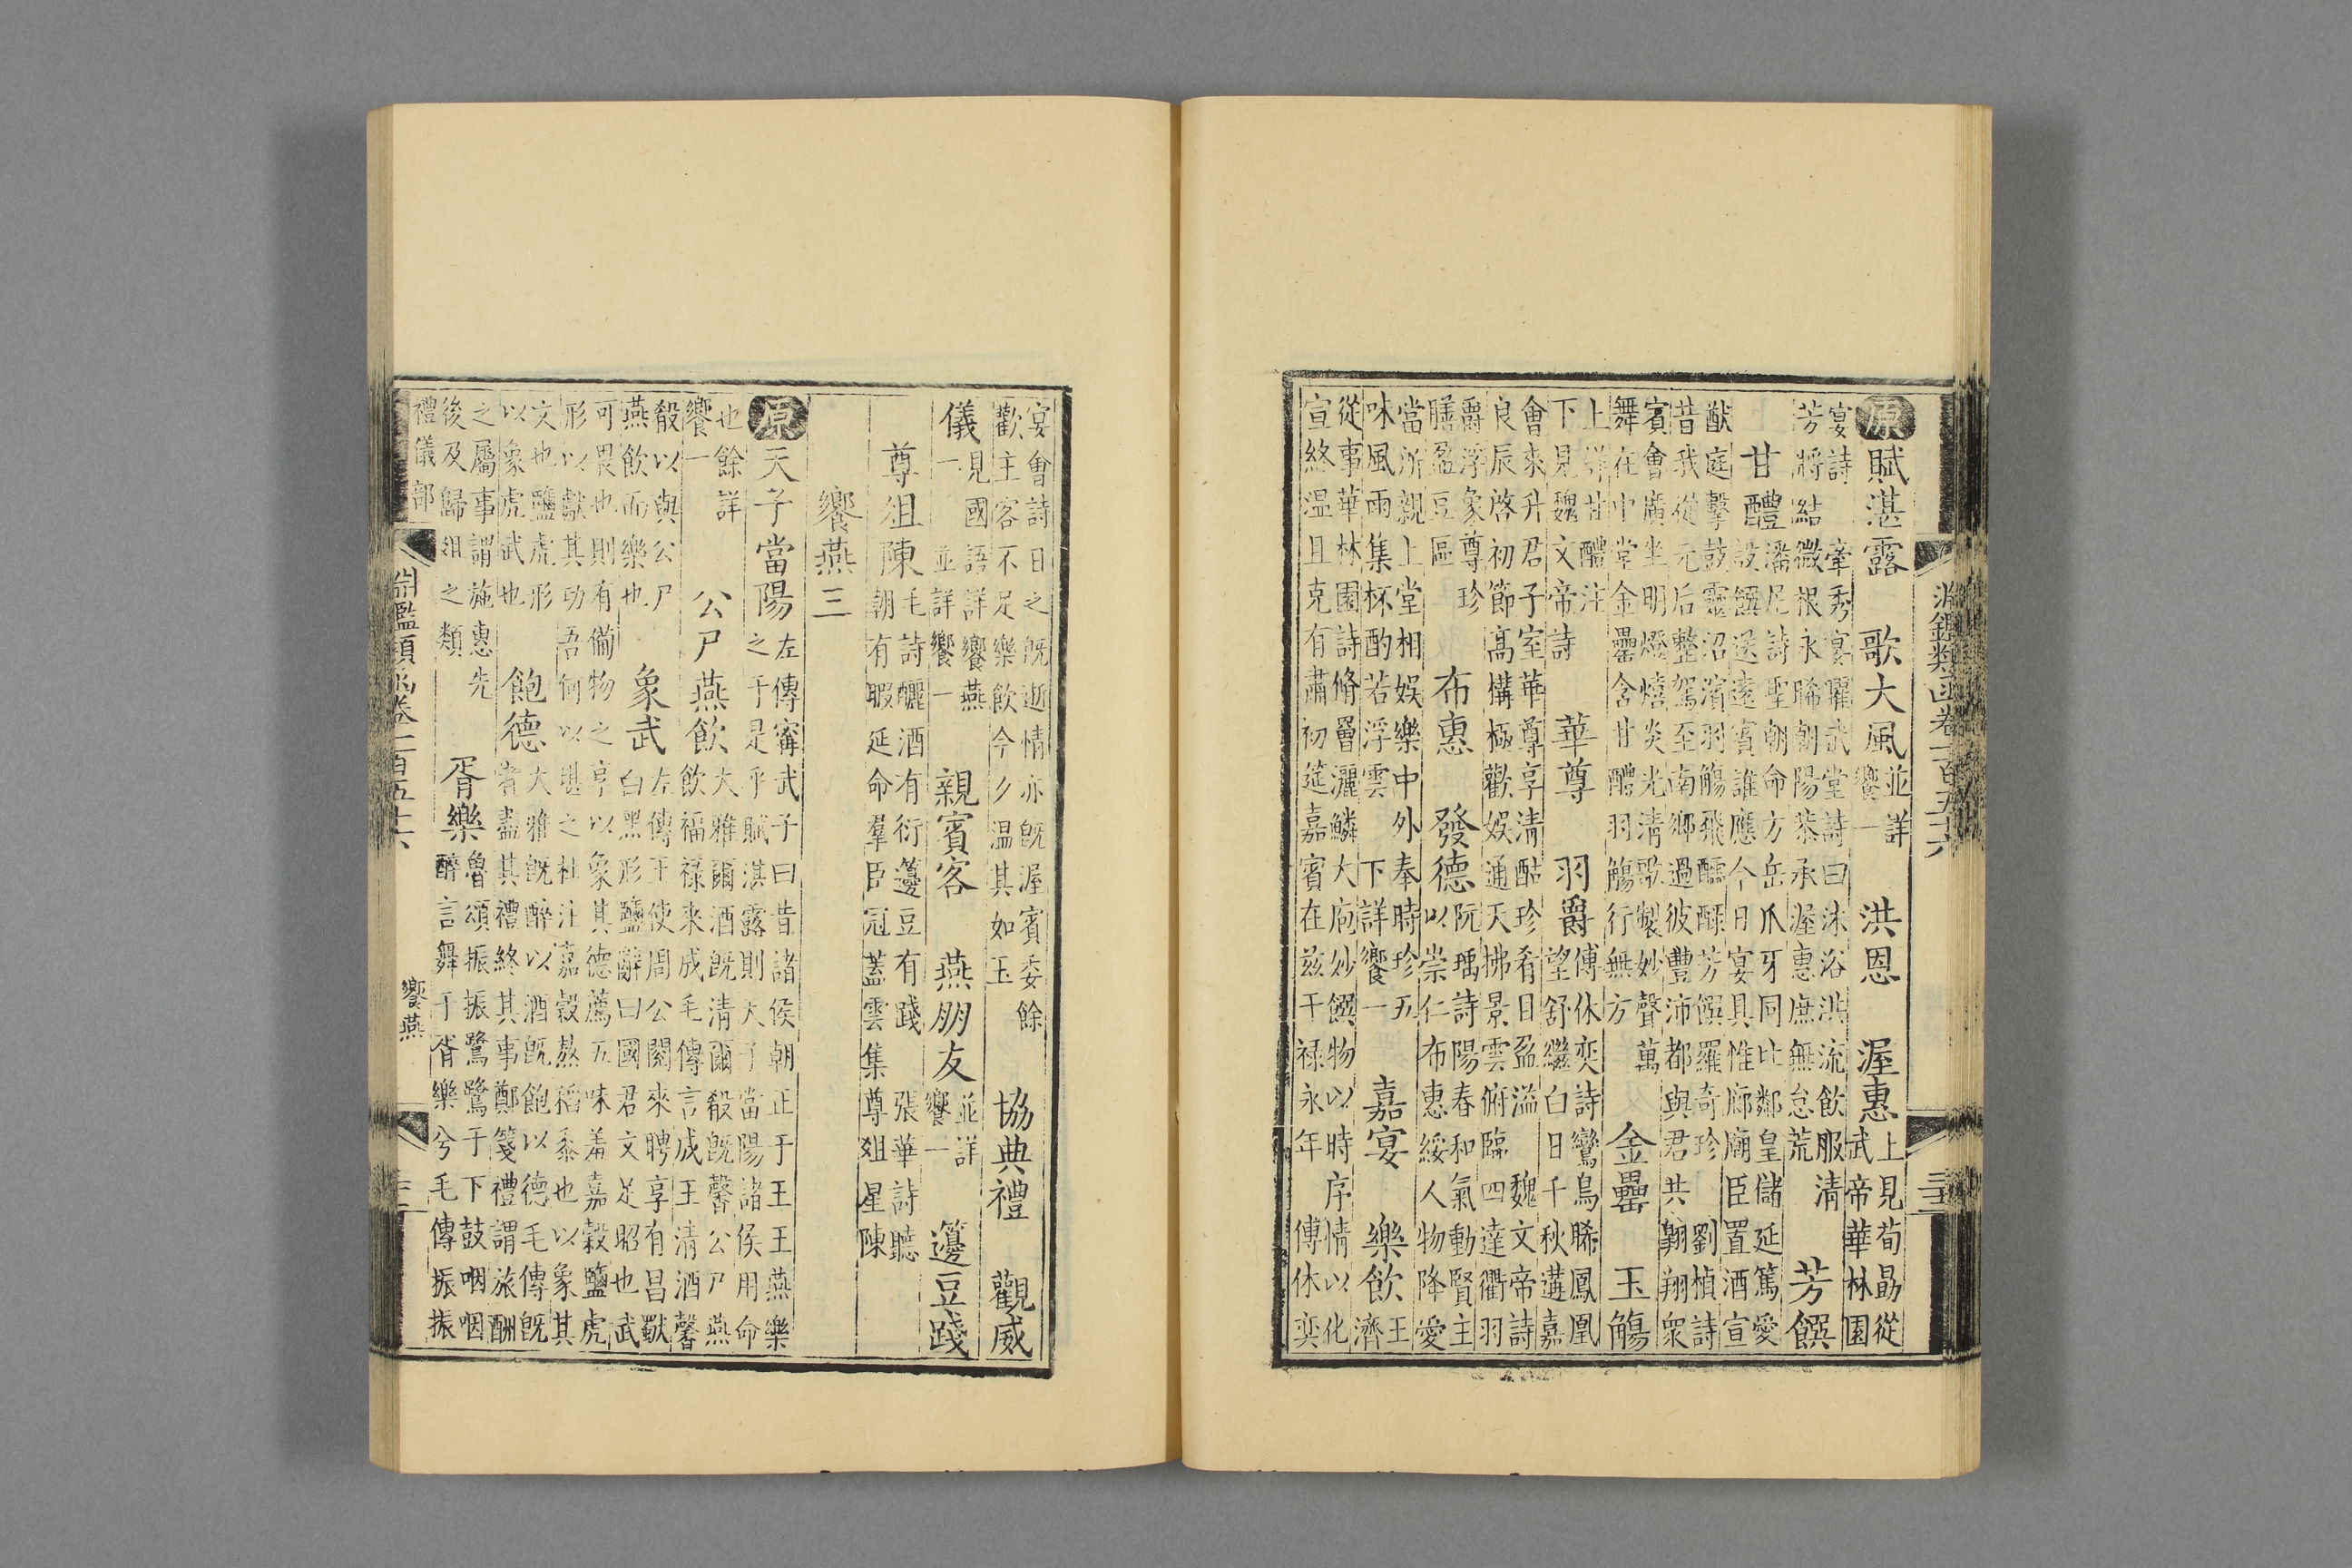 淵鑑類函卷一百五十六 三
原賦湛露 歌大風 並詳饗一 洪恩 渥惠 上見荀勗從武帝華林園
宴詩 牽秀宴曜武堂詩曰沐浴洪流飲服清芳將結微根永晞朝陽恭承渥惠庶無怠荒 芳饌
甘醴 潘尼詩聖朝命方岳爪牙同比鄰皇儲延篤愛設饌送遠賓誰應今日宴具惟廊廟臣置酒宣
猷庭擊鼓靈沼濱羽觴飛醽醁芳饌羅奇珍 劉楨詩昔我從元后整駕至南鄉過彼豐沛都與君共翱翔衆
賓會廣坐明燈熺炎光清歌製妙聲萬舞在中堂金罍含甘醴羽觴行無方 金罍 玉觴
上詳甘醴注下見魏文帝詩 華尊 羽爵 傅休奕詩鸞鳥晞鳳凰望舒繼白日千秋遘嘉
會來升君子室華尊享清酤珍肴日盈溢 魏文帝詩良辰啓初節高構極歡娛通天拂景雲俯臨四達衢羽
爵浮象尊珍膳盈豆區 布惠 發德 阮瑀詩陽春和氣動賢主以崇仁布惠綏人物降愛
當所親上堂相娛樂中外奉時珍五味風雨集杯酌若浮雲 下詳饗一 嘉宴 樂飲 王濟
從事華林園詩脩罾灑鱗大庖妙饌物以時序情以化宣終温且克有肅初筵嘉賓在兹干禄永年 傅休奕
宴會詩日之既逝情亦既渥賓委餘歡主客不足樂飲今夕温其如玉 協典禮 觀威
儀 見國語詳饗燕一 並詳饗一 親賓客 燕朋友 並詳饗一 籩豆踐
尊俎陳 毛詩釃酒有衍籩豆有踐 張華詩聽朝有暇延命羣臣冠蓋雲集尊俎星陳
饗燕三
原天子當陽 左傳甯武子曰昔諸侯朝正于王王燕樂之于是乎賦湛露則天子當陽諸侯用命
也餘詳饗一 公尸燕飲 大雅爾酒既清爾殽既馨公尸燕飲福禄來成毛傳言成王清酒馨
殽以與公尸燕飲而樂也 象武 左傳王使周公閱來聘享有昌歜白黑形鹽辭曰國君文足昭也武
可畏也則有備物之享以象其德薦五味羞嘉穀鹽虎形以獻其功吾何以堪之杜注嘉穀熬稻黍也以象其
文也鹽虎形以象虎武也 飽德 大雅既醉以酒既飽以德毛傳既者盡其禮終其事鄭箋禮謂旅酬
之屬事謂施惠先後及歸俎之類 胥樂 魯頌振振鷺鷺于下鼓咽咽醉言舞于胥樂兮毛傳振振
禮儀部 淵鑑類函卷一百五十六 饗燕 三